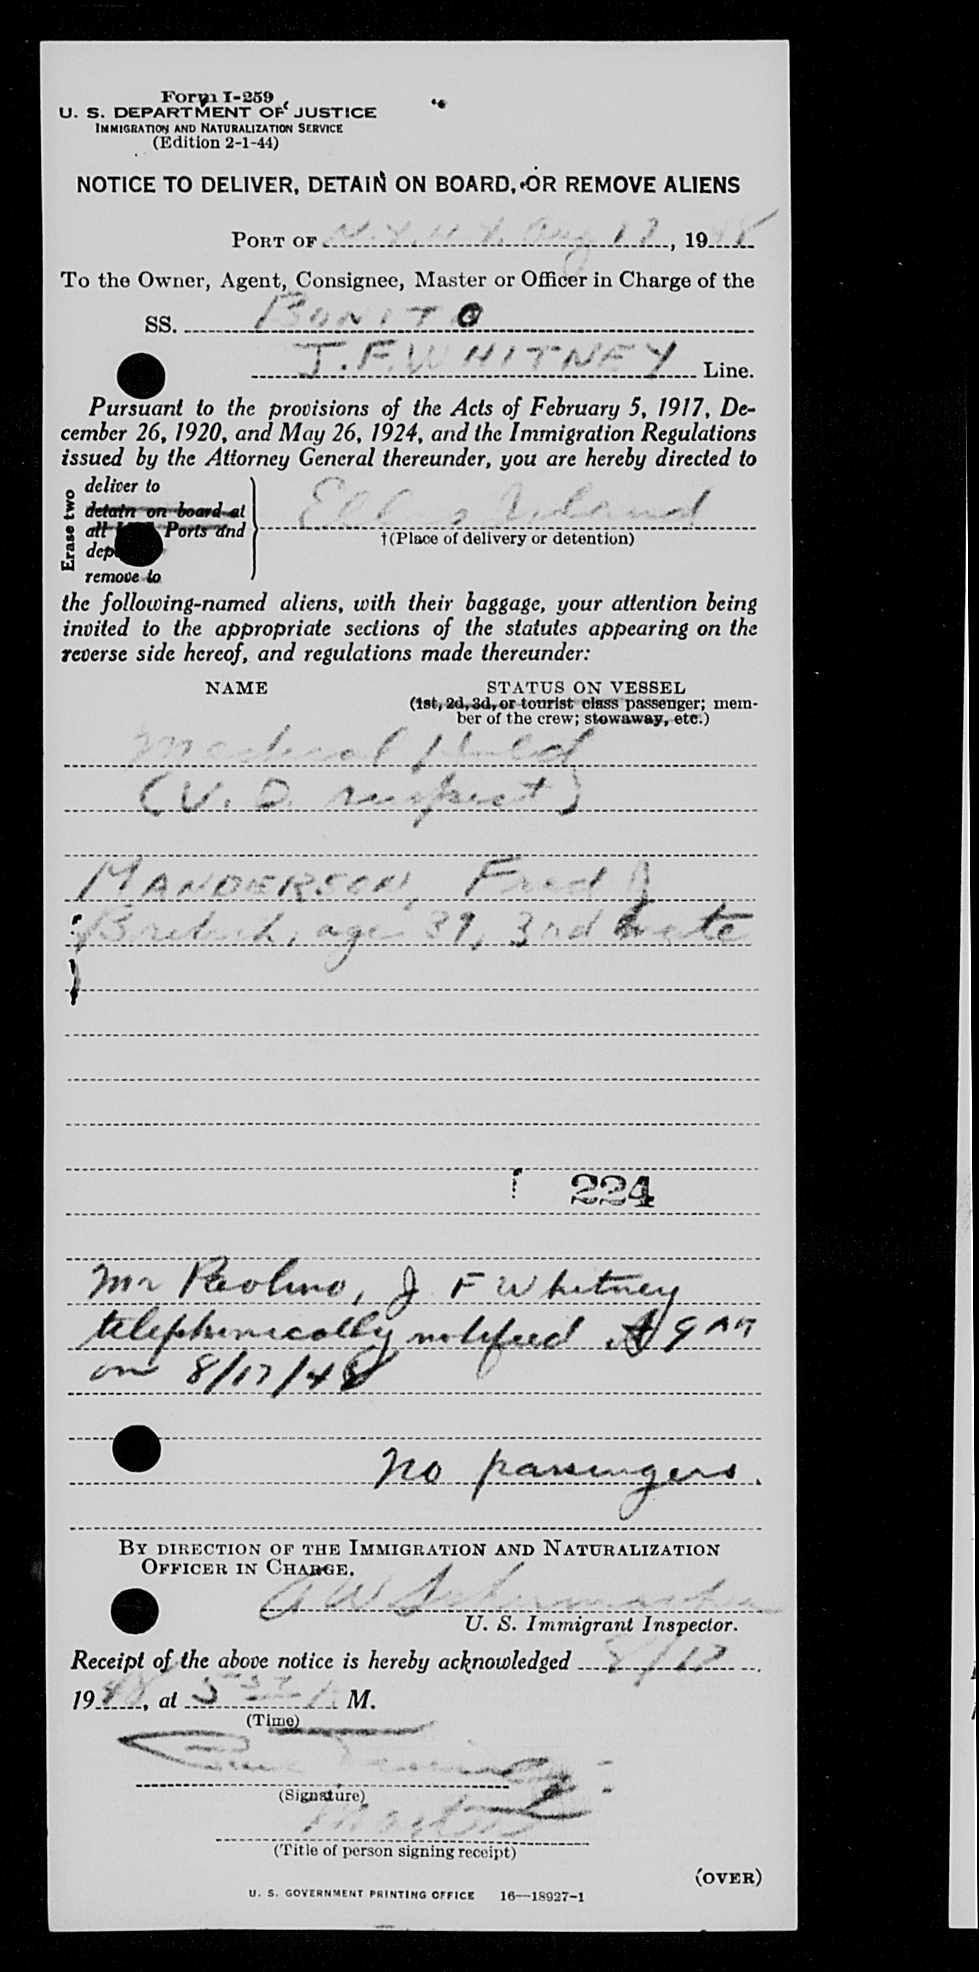 Form I-259
U. S. DEPARTMENT OF JUSTICE
IMMIGRATION AND NATURALIZATION SERVICE
(Edition 2-1-44)
NOTICE TO DELIVER, DETAIN ON BOARD, OR REMOVE ALIENS
PORT OF N.Y. N.Y. Aug 17, 1948
To the Owner, Agent, Consignee, Master or Officer in Charge of the
SS. BONITO
J. F. WHITNEY Line.
Pursuant to the provisions of the Acts of February 5, 1917, De-
cember 26, 1920, and May 26, 1924, and the Immigration Regulations
issued by the Attorney General thereunder, you are hereby directed to
Erase two
deliver to
detain on board at
all Ports and
remove to
Ellis Island
†(Place of delivery or detention)
the following-named aliens, with their baggage, your attention being
invited to the appropriate sections of the statutes appearing on the
reverse side hereof, and regulations made thereunder:
NAME STATUS ON VESSEL
(1st, 2d, 3d, or tourist class passenger; mem-
ber of the crew; stowaway, etc.)
Medical Hold
(V. D. suspect)
MANDERSON, Fred J
British, age 39, 3rd Mate
224
Mr Paolino, J F Whitney
telephonically notified 9 AM
on 8/17/48
No passengers.
BY DIRECTION OF THE IMMIGRATION AND NATURALIZATION
OFFICER IN CHARGE.
A W
U. S. Immigrant Inspector.
Receipt of the above notice is hereby acknowledged 8/17
1948, at M.
(Time)
(Signature)
Master
(Title of person signing receipt)
(OVER)
U. S. GOVERNMENT PRINTING OFFICE 16—18927-1